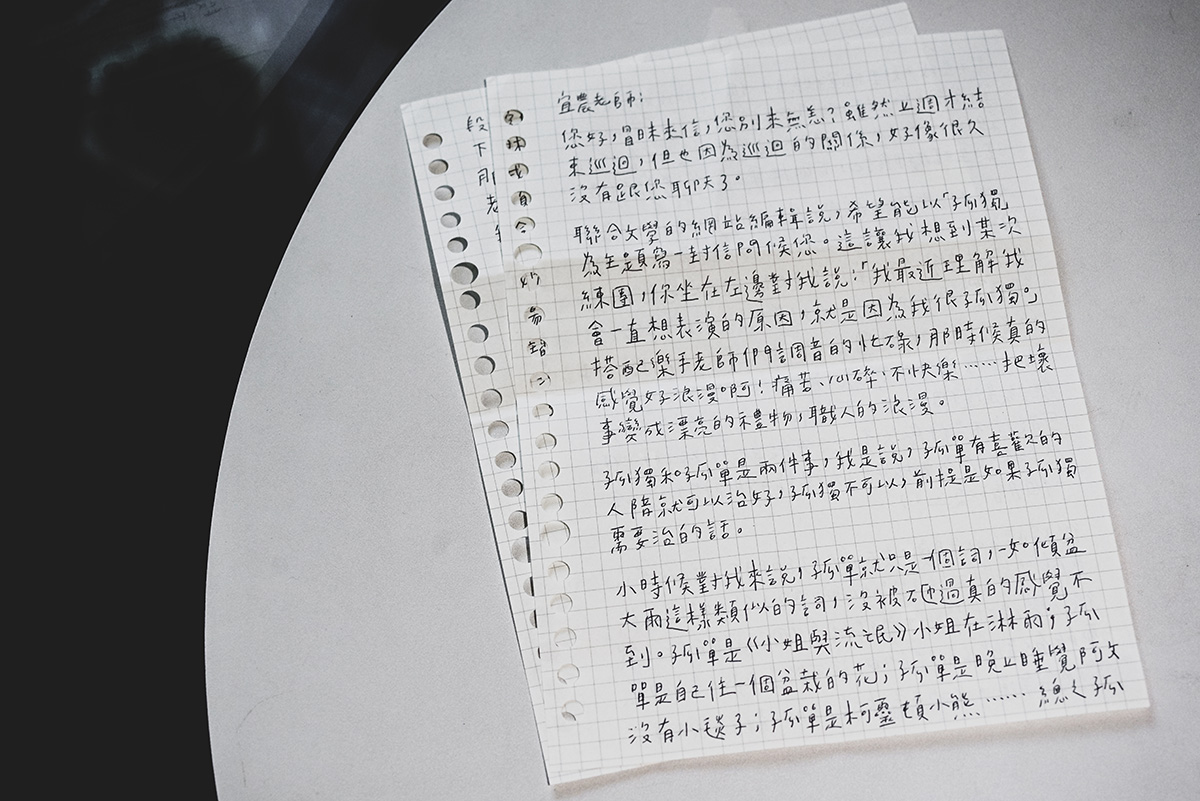 宜農老師：
您好，冒昧來信，您別來無恙？雖然上週才結
束巡迴，但也因為巡迴的關係，好像很久
沒有跟您聊天了。
聯合文學的網站編輯說，希望能以「孤獨
為主題寫一封信問候您。這讓我想到某次
練團，你坐在左邊對我說：「我最近理解我
會一直想表演的原因，就是因為我很孤獨。」
搭配樂手老師們調音的忙碌，那時候真的
感覺好浪漫啊！痛苦、心碎、不快樂……把壞
事變成漂亮的禮物，職人的浪漫。
孤獨和孤單是兩件事，我是說，孤單有喜歡的
人陪就可以治好，孤獨不可以，前提是如果孤獨
需要治的話。
小時候對我來說，孤單就只是一個詞，一如傾盆
大雨這樣類似的詞，沒被砸過真的感覺不
到。孤單是《小姐與流氓》小姐在淋雨；孤
單是自己住一個盆栽的花；孤單是晚上睡覺阿文
沒有小毯子；孤單是柯靈頓小熊……總之孤
段
下
那
老